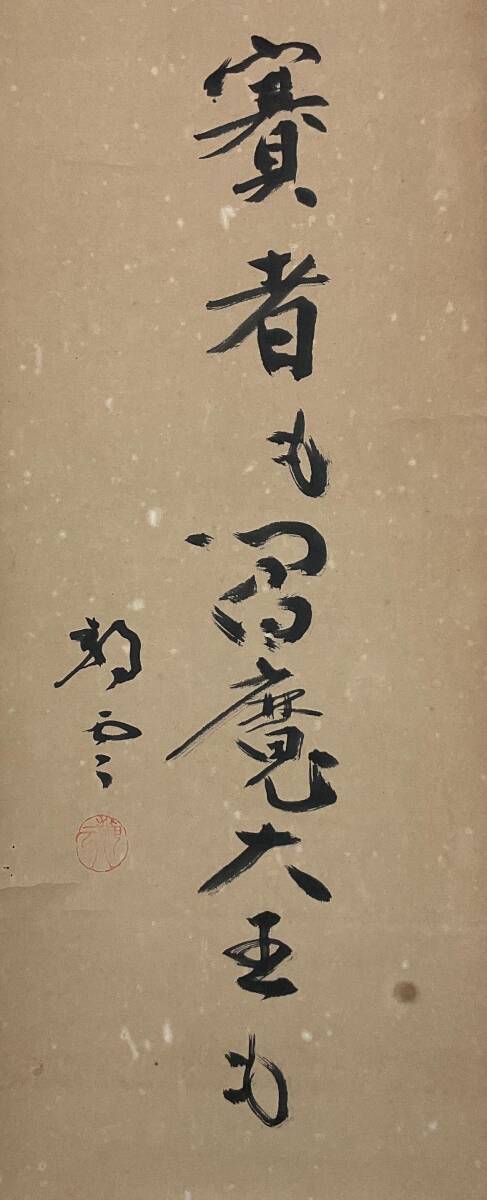 賽者も閻魔大王も
静雲